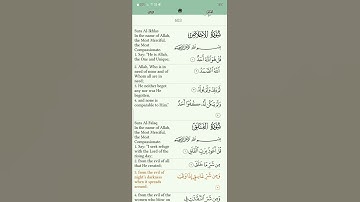 Sura Al-Ikhlas
In the name of Allah,
the Most Merciful,
the Most
Compassionate
1. Say: "He is Allah,
the One and Unique;
2. Allah, Who is in
need of none and of
Whom all are in need;
3. He neither begot
any nor was He
begotten,
4. and none is
comparable to Him."
سُورَةُ الإِخْلَاصِ
بِسْمِ اللَّهِ الرَّحْمَٰنِ الرَّحِيمِ
قُلْ هُوَ اللَّهُ أَحَدٌ
اللَّهُ الصَّمَدُ
لَمْ يَلِدْ وَلَمْ يُولَدْ
وَلَمْ يَكُن لَّهُ كُفُوًا أَحَدٌ
Sura Al-Falaq
In the name of Allah,
the Most Merciful,
the Most
Compassionate
1. Say: "I seek refuge
with the Lord of the
rising day;
2. from the evil of all
that He created;
3. from the evil of
night's darkness
when it spreads
around;
4. from the evil of the
women who blow on
سُورَةُ الْفَلَقِ
بِسْمِ اللَّهِ الرَّحْمَٰنِ الرَّحِيمِ
قُلْ أَعُوذُ بِرَبِّ الْفَلَقِ
مِن شَرِّ مَا خَلَقَ
وَمِن شَرِّ غَاسِقٍ إِذَا وَقَبَ